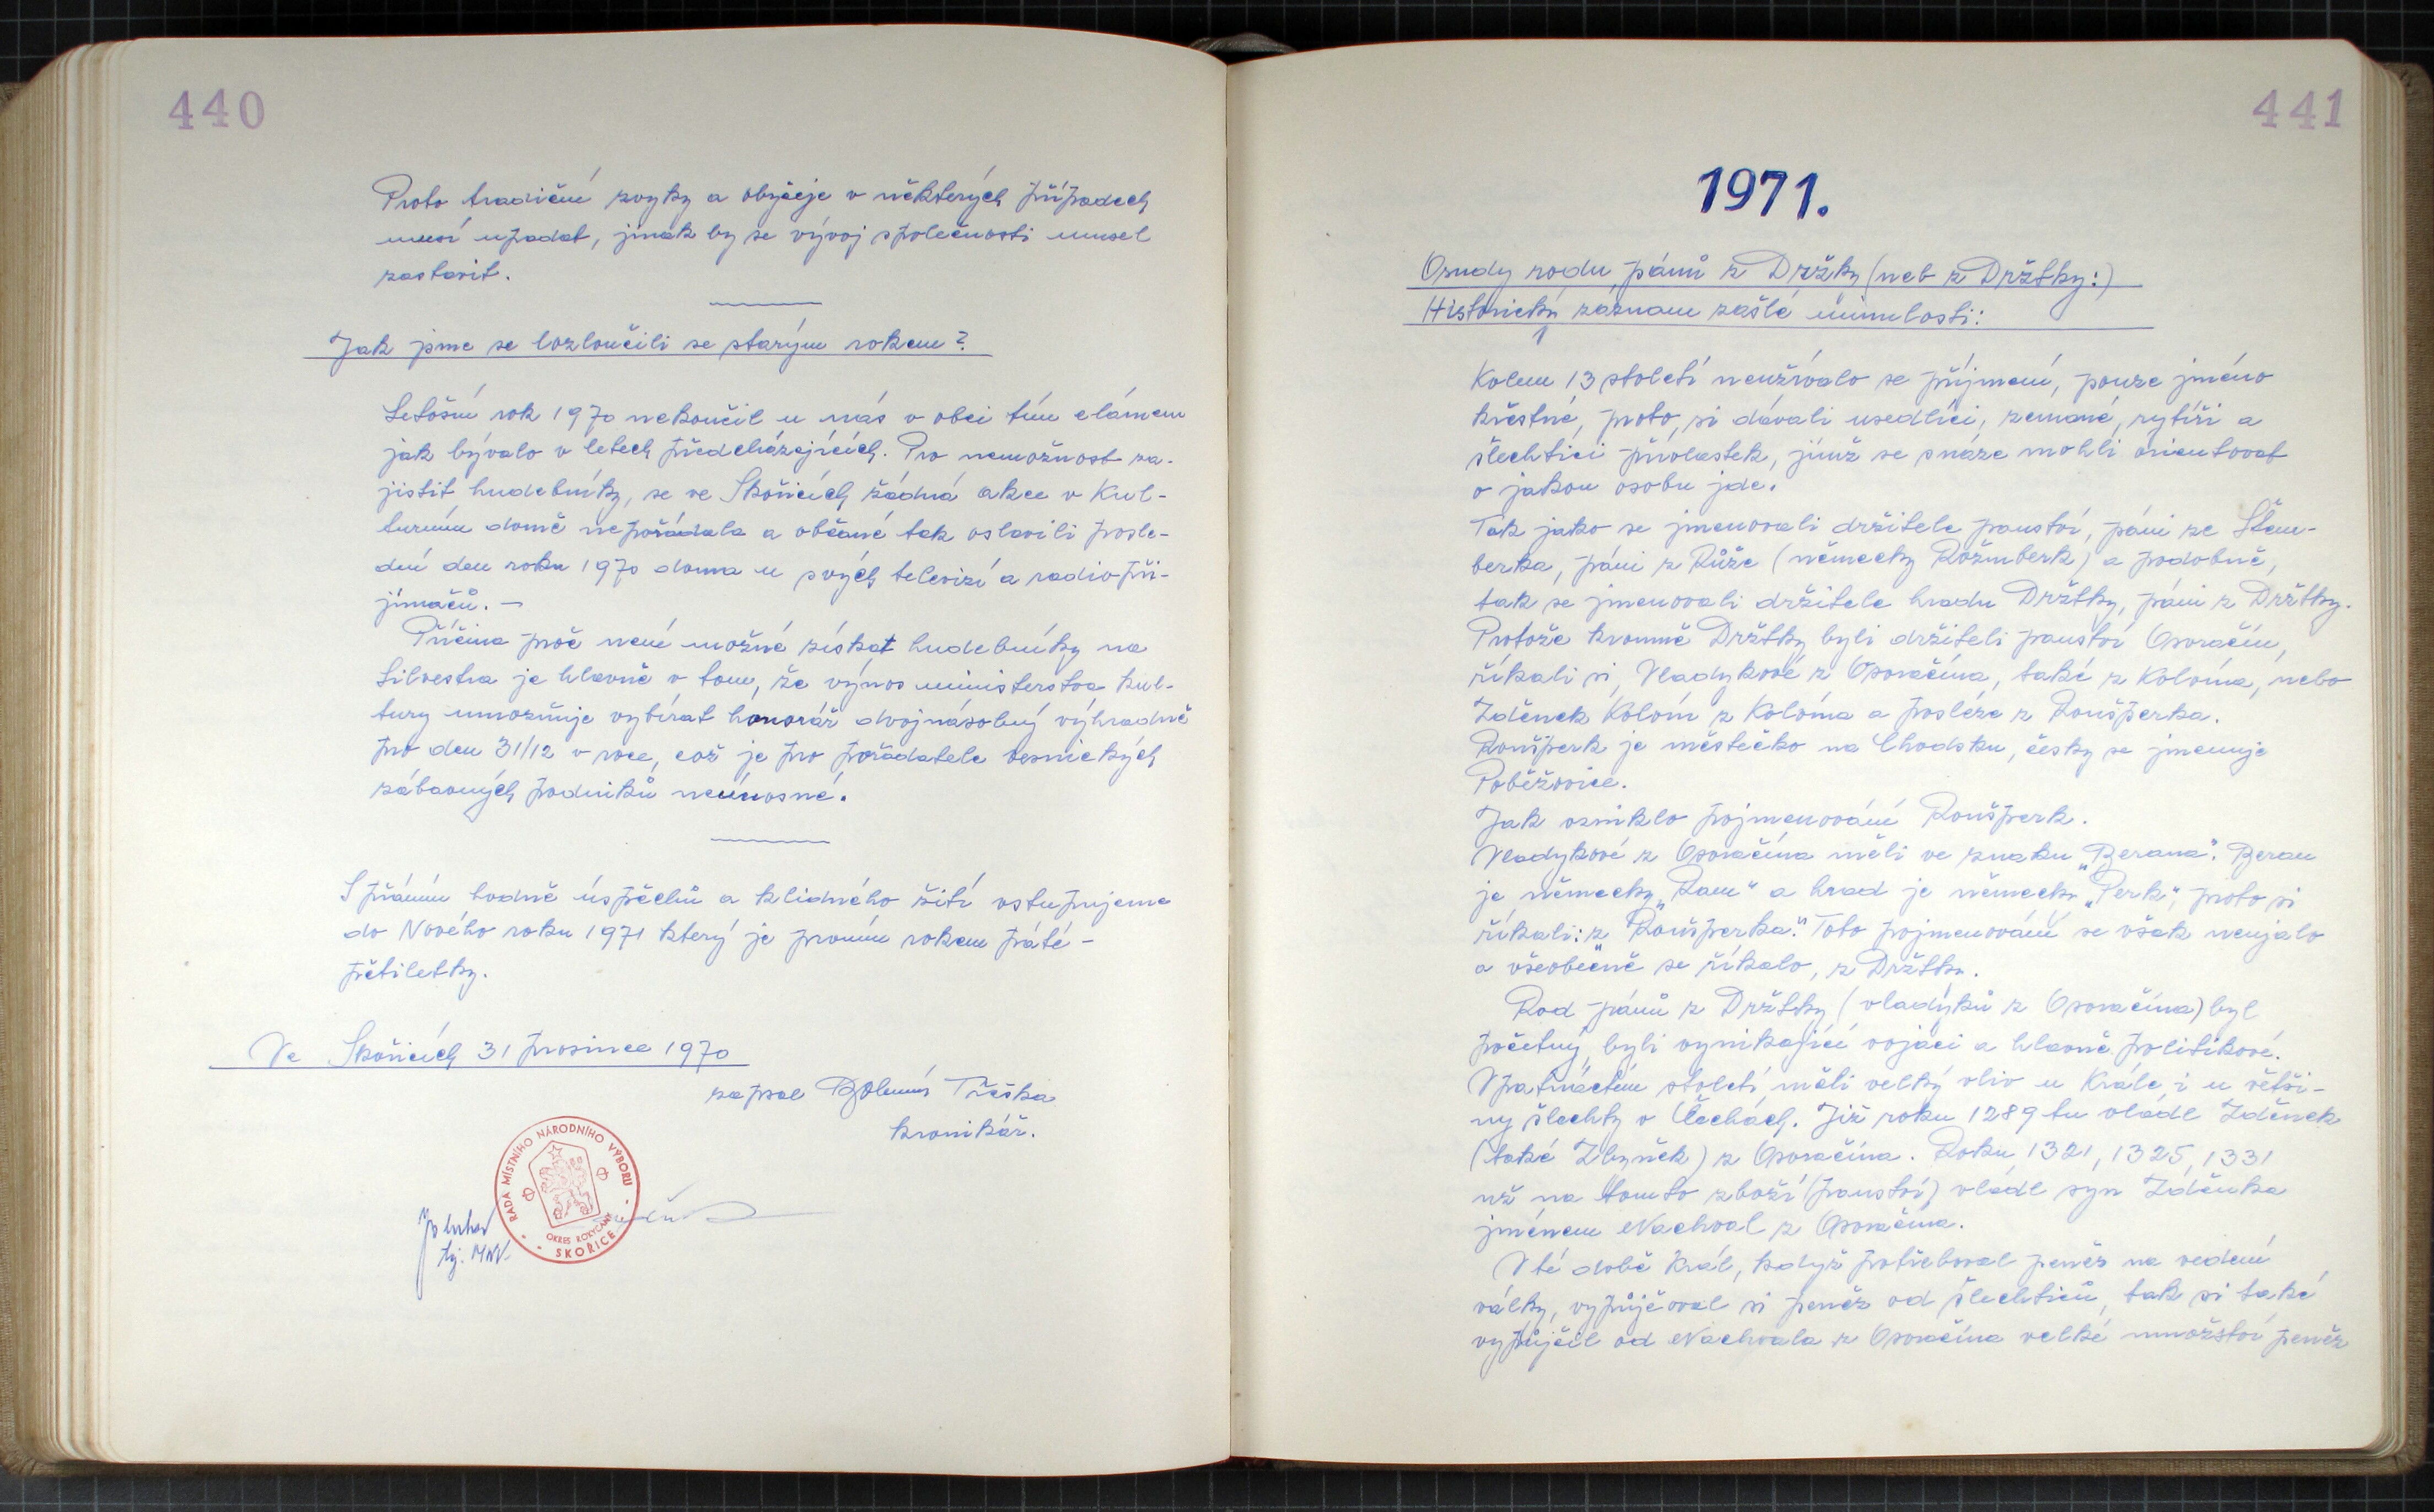 440
Proto tradiční zvyky a obyčeje v některých případech
musí upadat, jinak by se vývoj společnosti musel
zastavit.
Jak jsme se lozloučili se starým rokem?
Letošní rok 1970 nekončil u nás v obci tím elánem
jak bývalo v letech předcházejících. Pro nemožnost za-
jistit hudebníky, se ve Skořicích žádná akce v Kul-
turním domě nepořádala a občané tak oslavili posle-
dní den roku 1970 doma u svých televizí a radiopři-
jímačů. —
Příčina proč není možné získat hudebníky na
Silvestra je hlavně v tom, že výnos ministerstva kul-
tury umožňuje vybírat honorář dvojnásobný výhradně
pro den 31/12 v roce, což je pro pořadatele vesnických
zábavných podniků neúnosné.
S přáním hodně úspěchů a klidného žití vstupujeme
do Nového roku 1971 který je prvním rokem páté-
pětiletky.
Ve Skořicích 31 prosince 1970
zapsal Bohumír Třeška
kronikář.
RADA MÍSTNÍHO NÁRODNÍHO VÝBORU
OKRES ROKYCANY
SKOŘICE
taj. MNV.
441
1971.
Osudy rodu pánů z Držky (neb z Držtky:)
Historický záznam zašlé minulosti:
Kolem 13 století neužívalo se příjmení, pouze jméno
křestné, proto si dávali usedlíci, zemané, rytíři a
šlechtici přívlastek, jímž se snáze mohli orientovat
o jakou osobu jde.
Tak jako se jmenovali držitelé panství, páni ze Štern-
berka, páni z Růže (německy Rožmberk) a podobně,
tak se jmenovali držitele hradu Držtky, páni z Držtky.
Protože kromně Držtky byli držiteli panství Osvračín,
říkali si, Vladykové z Osvračína, také z Kolovína, nebo
Zděnek Kolovín z Kolovína a posléze z Ronšperka.
Ronšperk je městečko na Chodsku, česky se jmenuje
Poběžovice.
Jak vzniklo pojmenování Ronšperk.
Vladykové z Osvračína měli ve znaku „Berana". Beran
je německy „Ram" a hrad je německy „Perk", proto si
říkali: z „Ronšperka." Toto pojmenování se však neujalo
a všeobecně se říkalo, z Držtky.
Rod pánů z Držtky (vladyků z Osvračína) byl
početný, byli vynikající vojáci a hlavně politikové.
V patnáctém století měli velký vliv u Krále i u větši-
ny šlechty v Čechách. Již roku 1289 tu vládl Zděnek
(také Zbyněk) z Osvračína. Roku 1321, 1325, 1331
už na tomto zboží (panství) vládl syn Zděnka
jménem Nachval z Osvračína.
V té době Král, když potřeboval peněz na vedení
války, vypůjčoval si peněz od šlechticů, tak si také
vypůjčil od Nachvala z Osvračína velké množství peněz